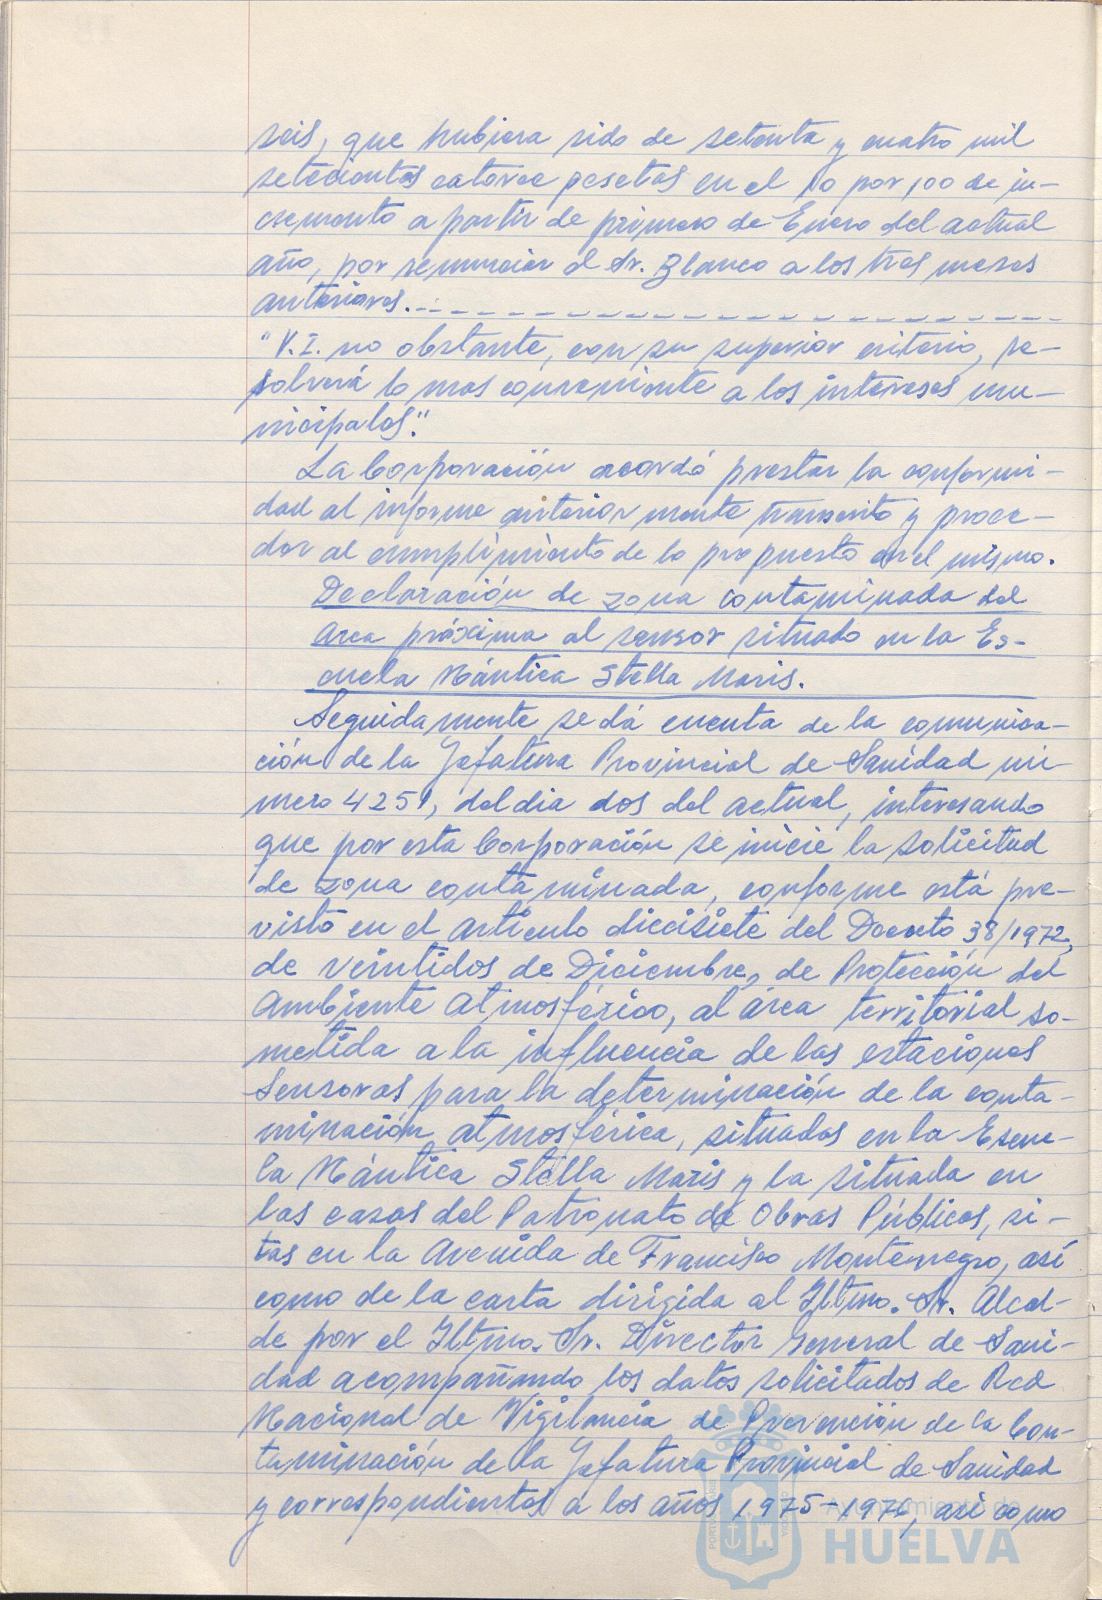 seis, que hubiera sido de setenta y cuatro mil
setecientos catorce pesetas en el 10 por 100 de in-
cremento a partir de primero de Enero del actual
año, por renunciar el Sr. Blanco a los tres meses
anteriores.
"V.I. no obstante, con su superior criterio, re-
solverá lo mas conveniente a los intereses mu-
nicipales".
La Corporación acordó prestar la conformi-
dad al informe anteriormente transcrito y proce-
der al cumplimiento de lo propuesto en el mismo.
Declaración de zona contaminada del
area próxima al sensor situado en la Es-
cuela Náutica Stella Maris.
Seguidamente se dá cuenta de la comunica-
ción de la Jefatura Provincial de Sanidad nú-
mero 4251, del dia dos del actual, interesando
que por esta Corporación se inicie la solicitud
de zona contaminada, conforme está pre-
visto en el articulo diecisiete del Decreto 38/1972,
de veintidos de Diciembre, de Protección del
Ambiente Atmosférico, al área territorial so-
metida a la influencia de las estaciones
Sensoras para la determinación de la conta-
minación atmosférica, situadas en la Escue-
la Náutica Stella Maris y la situada en
las casas del Patronato de Obras Públicas, si-
tas en la Avenida de Francisco Montenegro, así
como de la carta dirigida al Iltmo. Sr. Alcal-
de por el Iltmo. Sr. Director General de Sani-
dad acompañando los datos solicitados de Red
Nacional de Vigilancia de Prevención de la Con-
taminación de la Jefatura Provincial de Sanidad
y correspondientes a los años 1975-1976, así como
Ayuntamiento de
HUELVA